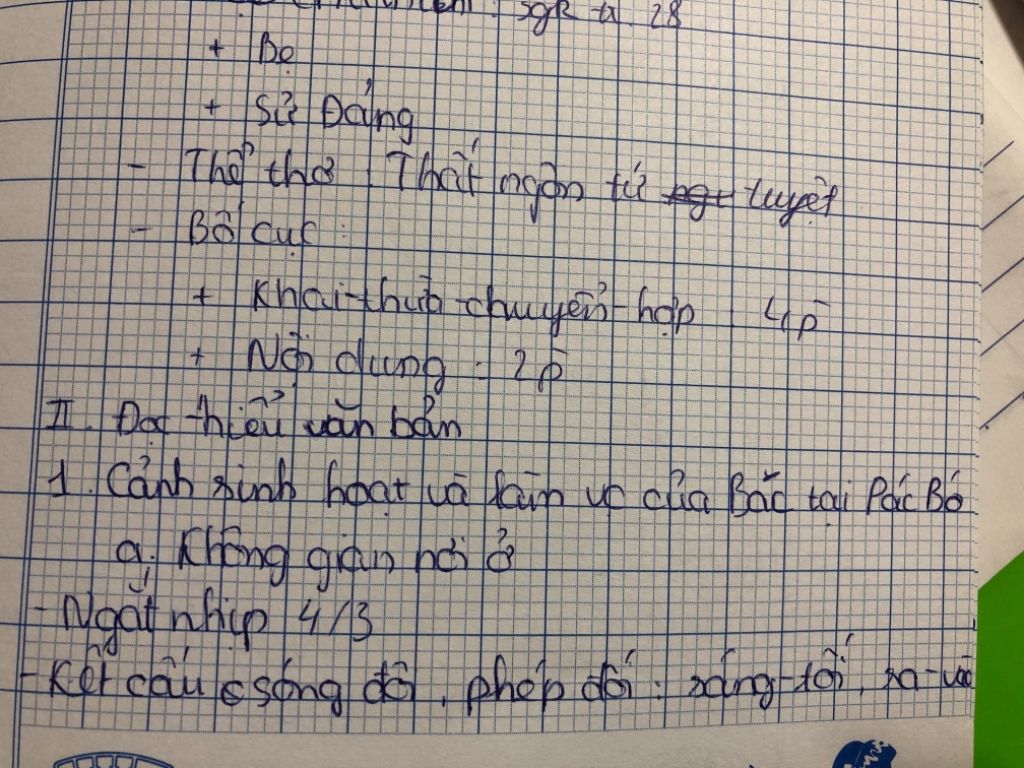 sgk tr 28
+ Bẹ
+ Sử Đảng
- Thể thơ : Thất ngôn tứ tuyệt
- Bố cục :
+ Khai-thừa-chuyển-hợp : 4p
+ Nội dung : 2p
II. Đọc-hiểu văn bản
1. Cảnh sinh hoạt và làm vc của Bác tại Pác Bó
a. Không gian nơi ở
- Ngắt nhịp 4/3
- Kết cấu sóng đôi, phép đối : sáng-tối, ra-vào